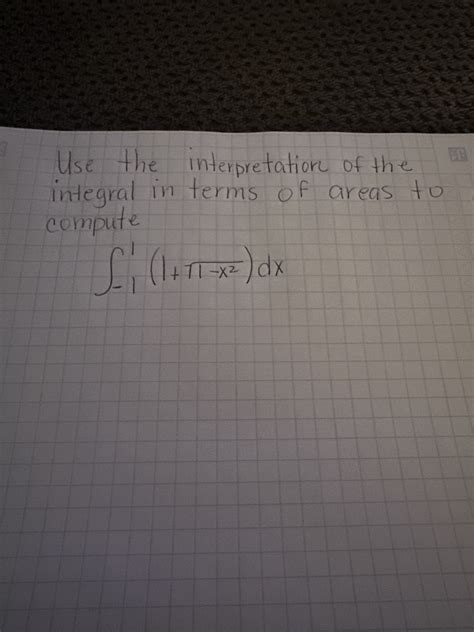 Use the interpretation of the
integral in terms of areas to
compute
∫₋₁¹ (1+√1-x²)dx